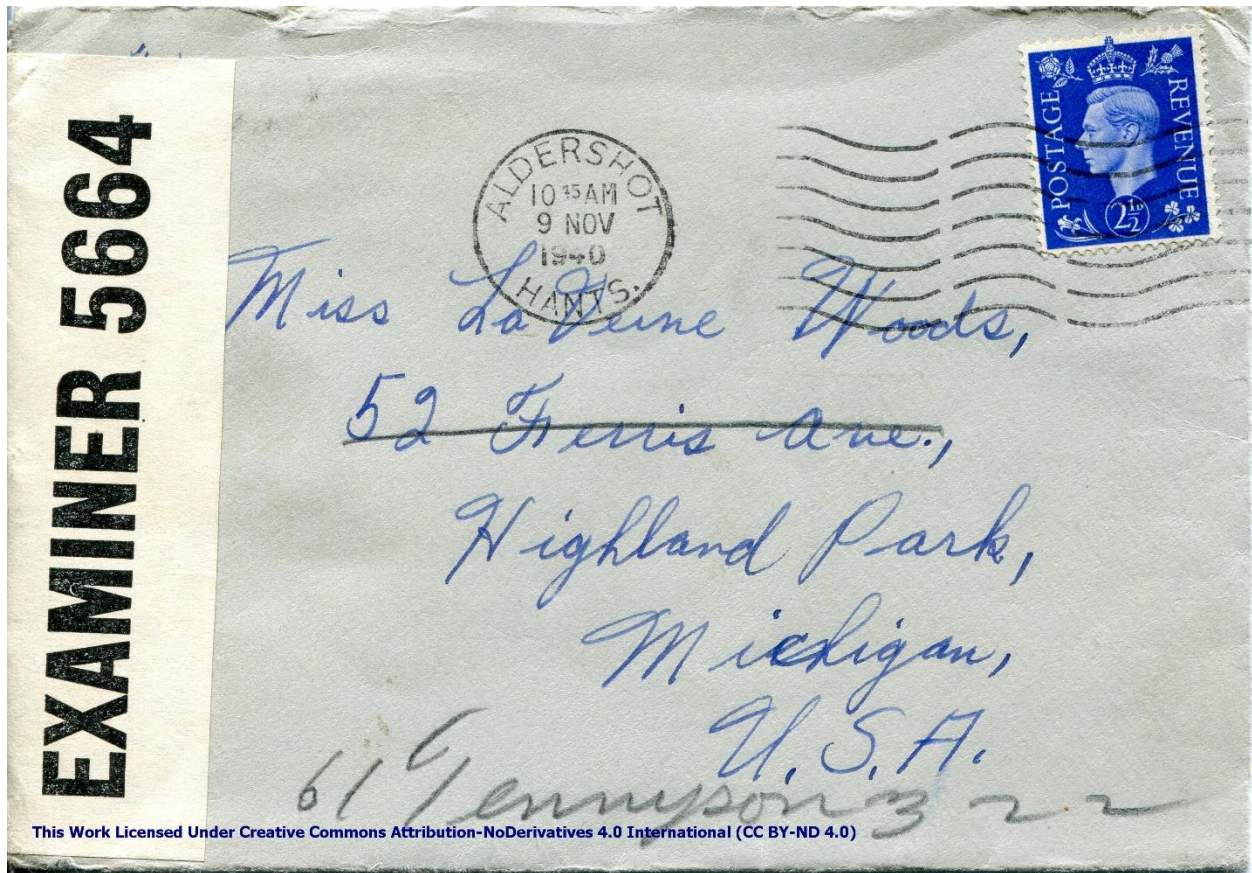 EXAMINER 5664
ALDERSHOT
10 15 AM
9 NOV
1940
HANTS.
POSTAGE
REVENUE
2½D
Miss LaVerne Woods,
52 Ferris Ave.,
Highland Park,
Michigan,
U.S.A.
61 Tennyson
This Work Licensed Under Creative Commons Attribution-NoDerivatives 4.0 International (CC BY-ND 4.0)